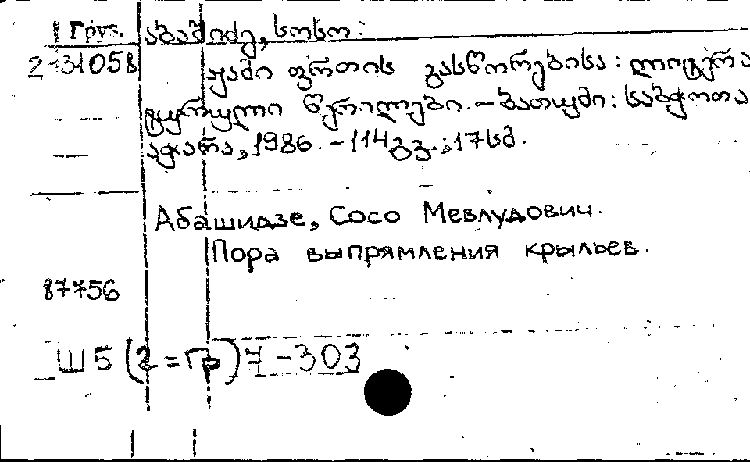 Груз. აბაშიძე, სოსო:
2-31058 ჟამი ფრთის გასწორებისა: ლიტერა
ტურული წერილები. – ბათუმი: საბჭოთა
აჭარა, 1986. – 114 გვ.; 17 სმ.
Абашидзе, Сосо Мевлудович.
Пора выпрямления крыльев.
87756
Ш5(2=Гр)7-303